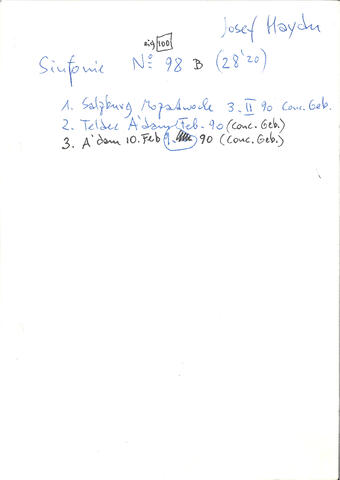 Josef Haydn
sig 100
Sinfonie No 98 B (28'20)
1. Salzburg Mozartwoche 3. II 90 Conc. Geb.
2. Teldec A'dam Feb. 90 (Conc. Geb.)
3. A'dam 10. Feb 90 (Conc. Geb.)